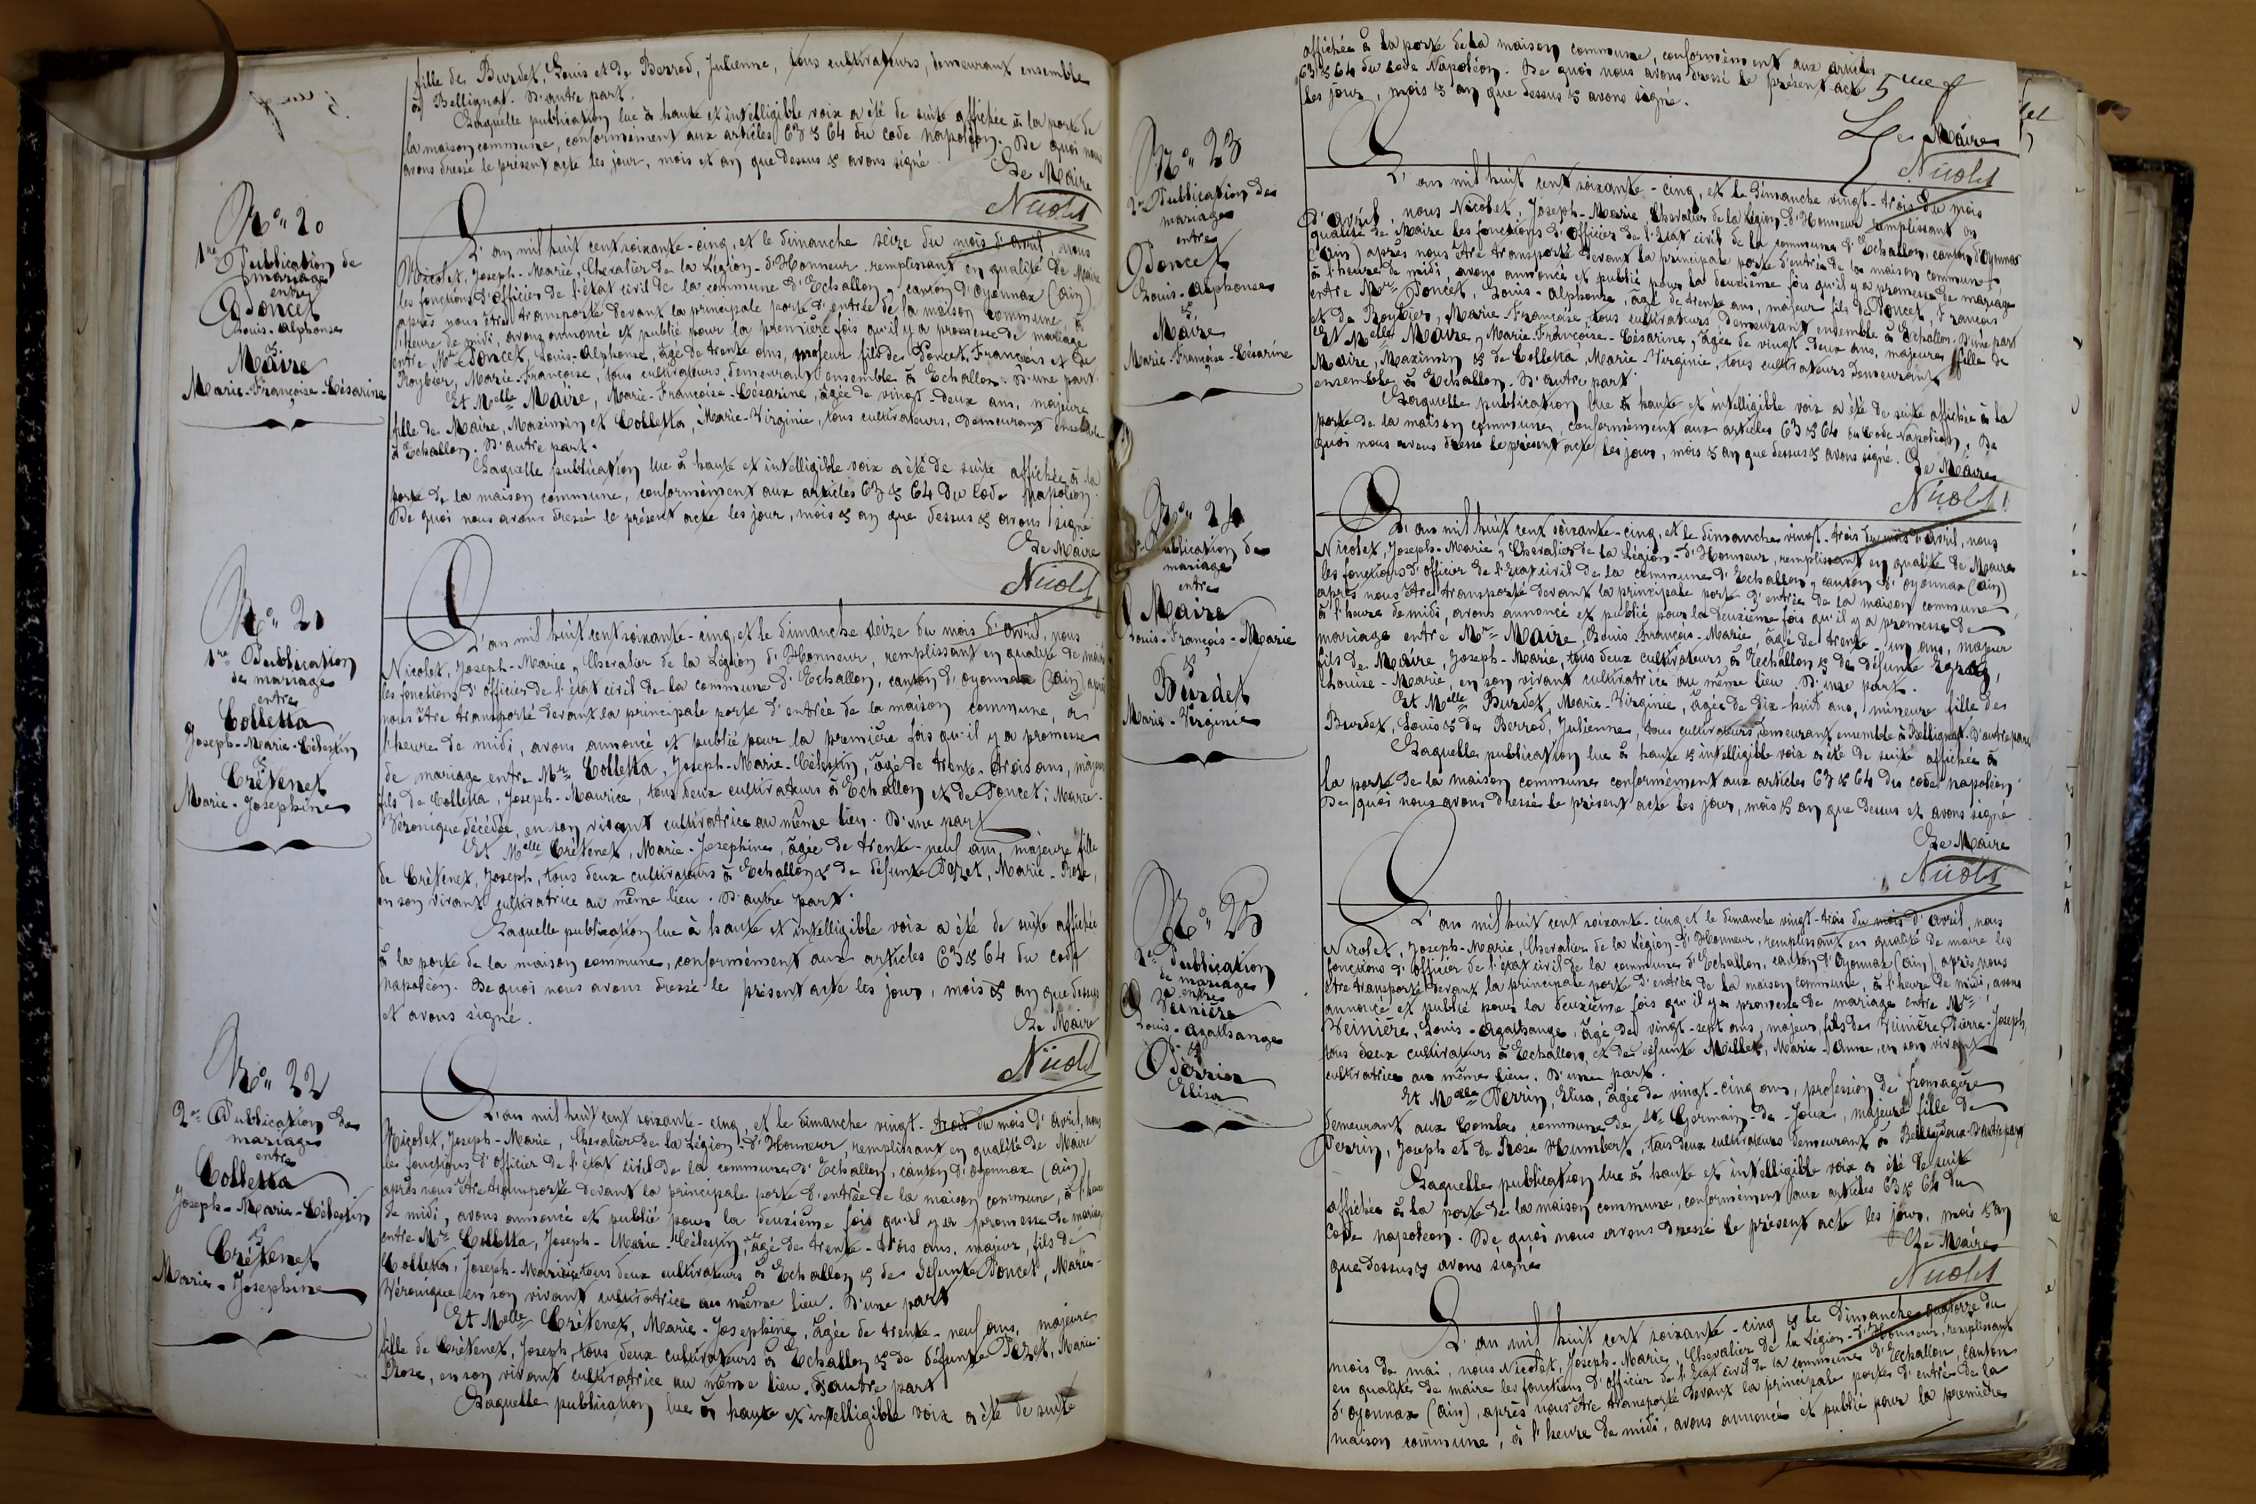 fille de Burdet, Louis et de Berrod, Julienne, tous cultivateurs, demeurant ensemble
à Bellignat. D'autre part.
Laquelle publication lue à haute et intelligible voix a été de suite affichée à la porte de
la maison commune, conformément aux articles 63 & 64 du code napoléon. De quoi nous
avons dressé le présent acte les jour, mois et an que dessus & avons signé.
Le Maire
Nicolet
No 20
1re Publication de
mariage
entre
Poncet
Louis-Alphonse
&
Maire
Marie-Françoise-Césarine
L'an mil huit cent soixante-cinq, et le dimanche seize du mois d'avril, nous
Nicolet, Joseph-Marie, Chevalier de la Légion-d'Honneur remplissant en qualité de Maire
les fonctions d'officier de l'état civil de la commune d'Echallon, canton d'oyonnax (ain)
après nous être transporté devant la principale porte d'entrée de la maison commune, à
l'heure de midi, avons annoncé et publié pour la première fois qu'il y a promesse de mariage
entre Mr Poncet, Louis-Alphonse, âgé de trente ans, majeur fils de Poncet, François et de
Roybier, Marie-Françoise, tous cultivateurs, demeurant ensemble à Echallon. D'une part.
Et Melle Maire, Marie-Françoise-Césarine, âgée de vingt-deux ans, majeure
fille de Maire, Maximin et Colletta, Marie-Virginie, tous cultivateurs, demeurant ensemble
à Echallon. D'autre part.
Laquelle publication lue à haute et intelligible voix a été de suite affichée à la
porte de la maison commune, conformément aux articles 63 & 64 du Code Napoléon.
De quoi nous avons dressé le présent acte les jour, mois & an que dessus & avons signé
Le Maire
Nicolet
No 21
1re Publication
de mariage
entre
Colletta
Joseph-Marie-Célestin
&
Crétenet
Marie-Josephine
L'an mil huit cent soixante-cinq, et le dimanche seize du mois d'avril, nous
Nicolet, Joseph-Marie, Chevalier de la Légion d'Honneur, remplissant en qualité de maire
les fonctions d'officier de l'état civil de la commune d'Echallon, canton d'oyonnax (ain) après
nous être transporté devant la principale porte d'entrée de la maison commune, à
l'heure de midi, avons annoncé et publié pour la première fois qu'il y a promesse
de mariage entre Mr Colletta, Joseph-Marie-Célestin, âgé de trente-trois ans, majeur
fils de Colletta, Joseph-Maurice, tous deux cultivateurs à Echallon et de Poncet, Marie-
Véronique décédée, en son vivant cultivatrice au même lieu. D'une part
Et Melle Crétenet, Marie-Josephine, âgée de trente-neuf ans, majeure fille
de Crétenet, Joseph, tous deux cultivateurs à Echallon & de défunte Pozet, Marie-Rose,
en son vivant cultivatrice au même lieu. D'autre part.
Laquelle publication lue à haute et intelligible voix a été de suite affichée
à la porte de la maison commune, conformément aux articles 63 & 64 du code
napoléon. De quoi nous avons dressé le présent acte les jour, mois & an que dessus
et avons signé.
Le Maire
Nicolet
No 22
2e Publication de
mariage
entre
Colletta
Joseph-Marie-Célestin
&
Crétenet
Marie-Josephine
L'an mil huit cent soixante-cinq, et le dimanche vingt-trois du mois d'avril, nous
Nicolet, Joseph-Marie, Chevalier de la Légion-d'Honneur, remplissant en qualité de Maire
les fonctions d'officier de l'état civil de la commune d'Echallon, canton d'oyonnax (ain),
après nous être transporté devant la principale porte d'entrée de la maison commune, à l'heure
de midi, avons annoncé et publié pour la deuxième fois qu'il y a promesse de mariage
entre Mr Colletta, Joseph-Marie-Célestin, âgé de trente-trois ans, majeur, fils de
Colletta, Joseph-Maurice, tous deux cultivateurs à Echallon & de défunte Poncet, Marie-
Véronique en son vivant cultivatrice au même lieu. D'une part
Et Melle Crétenet, Marie-Josephine, âgée de trente-neuf ans, majeure
fille de Crétenet, Joseph, tous deux cultivateurs à Echallon & de défunte Pozet, Marie-
Rose, en son vivant cultivatrice au même lieu. D'autre part
Laquelle publication lue à haute et intelligible voix a été de suite
affichée à la porte de la maison commune, conformément aux articles
63 & 64 du code Napoléon. De quoi nous avons dressé le présent acte
les jour, mois & an que dessus & avons signé.
5me f
Le Maire
Nicolet
No 23
2e Publication de
mariage
entre
Poncet
Louis-Alphonse
&
Maire
Marie-Françoise-Césarine
L'an mil huit cent soixante-cinq, et le dimanche vingt-trois du mois
d'avril, nous Nicolet, Joseph-Marie Chevalier de la Légion-d'Honneur remplissant en
qualité de Maire les fonctions d'officier de l'état civil de la commune d'Echallon, canton d'oyonnax
(ain) après nous être transporté devant la principale porte d'entrée de la maison commune,
à l'heure de midi, avons annoncé et publié pour la deuxième fois qu'il y a promesse de mariage
entre Mr Poncet, Louis-Alphonse, âgé de trente ans, majeur fils de Poncet, François
et de Roybier, Marie-Françoise, tous cultivateurs, demeurant ensemble à Echallon. D'une part
Et Melle Maire, Marie-Françoise-Césarine, âgée de vingt-deux ans, majeure fille de
Maire, Maximin & de Colletta Marie-Virginie, tous cultivateurs demeurant
ensemble à Echallon. D'autre part.
Laquelle publication lue à haute et intelligible voix a été de suite affichée à la
porte de la maison commune, conformément aux articles 63 & 64 du Code Napoléon. De
quoi nous avons dressé le présent acte les jour, mois & an que dessus & avons signé.
Le Maire
Nicolet
No 24
2e Publication de
mariage
entre
Maire
Louis-François-Marie
&
Burdet
Marie-Virginie
L'an mil huit cent soixante-cinq, et le dimanche vingt-trois du mois d'avril, nous
Nicolet, Joseph-Marie, Chevalier de la Légion-d'Honneur, remplissant en qualité de Maire
les fonctions d'officier de l'état civil de la commune d'Echallon, canton d'oyonnax (ain)
après nous être transporté devant la principale porte d'entrée de la maison commune,
à l'heure de midi, avons annoncé et publié pour la deuxième fois qu'il y a promesse de
mariage entre Mr Maire, Louis François-Marie, âgé de trente-un ans, majeur
fils de Maire, Joseph-Marie, tous deux cultivateurs à Echallon & de défunte Egraz,
Louise-Marie, en son vivant cultivatrice au même lieu. D'une part.
Et Melle Burdet, Marie-Virginie, âgée de dix-huit ans, mineure fille de
Burdet, Louis & de Berrod, Julienne, tous cultivateurs, demeurant ensemble à Bellignat. D'autre part
Laquelle publication lue à haute & intelligible voix a été de suite affichée à
la porte de la maison commune conformément aux articles 63 & 64 du code napoléon.
De quoi nous avons dressé le présent acte les jour, mois & an que dessus et avons signé
Le Maire
Nicolet
No 25
2e Publication
de
mariage
entre
Veinière
Louis-Agathange
&
Perrin
Elisa
L'an mil huit cent soixante-cinq et le dimanche vingt-trois du mois d'avril, nous
Nicolet, Joseph-Marie, Chevalier de la Légion-d'Honneur, remplissant en qualité de maire les
fonctions d'officier de l'état civil de la commune d'Echallon, canton d'Oyonnax (ain) après nous
être transporté devant la principale porte d'entrée de la maison commune, à l'heure de midi, avons
annoncé et publié pour la deuxième fois qu'il y a promesse de mariage entre Mr
Veinière, Louis-Agathange, âgé de vingt-sept ans, majeur, fils de Veinière Pierre-Joseph,
tous deux cultivateurs à Echallon, et de défunte Millet, Marie-Anne, en son vivant
cultivatrice au même lieu. D'une part.
Et Melle Perrin, Elisa, âgée de vingt-cinq ans, profession de fromagère
demeurant aux Combes commune de St Germain-de-Joux, majeure fille de
Perrin, Joseph et de Rose Humbert, tous deux cultivateurs demeurant à Belleydoux. D'autre part
Laquelle publication lue à haute et intelligible voix a été de suite
affichée à la porte de la maison commune, conformément aux articles 63 & 64 du
Code napoléon. De quoi nous avons dressé le présent acte les jour, mois & an
que dessus & avons signé
Le Maire
Nicolet
L'an mil huit cent soixante-cinq & le Dimanche quatorze du
mois de mai, nous Nicolet, Joseph-Marie, Chevalier de la Légion-d'Honneur, remplissant
en qualité de maire les fonctions d'officier de l'état civil de la commune d'Echallon, canton
d'oyonnax (ain), après nous être transporté devant la principale porte d'entrée de la
maison commune, à l'heure de midi, avons annoncé et publié pour la première